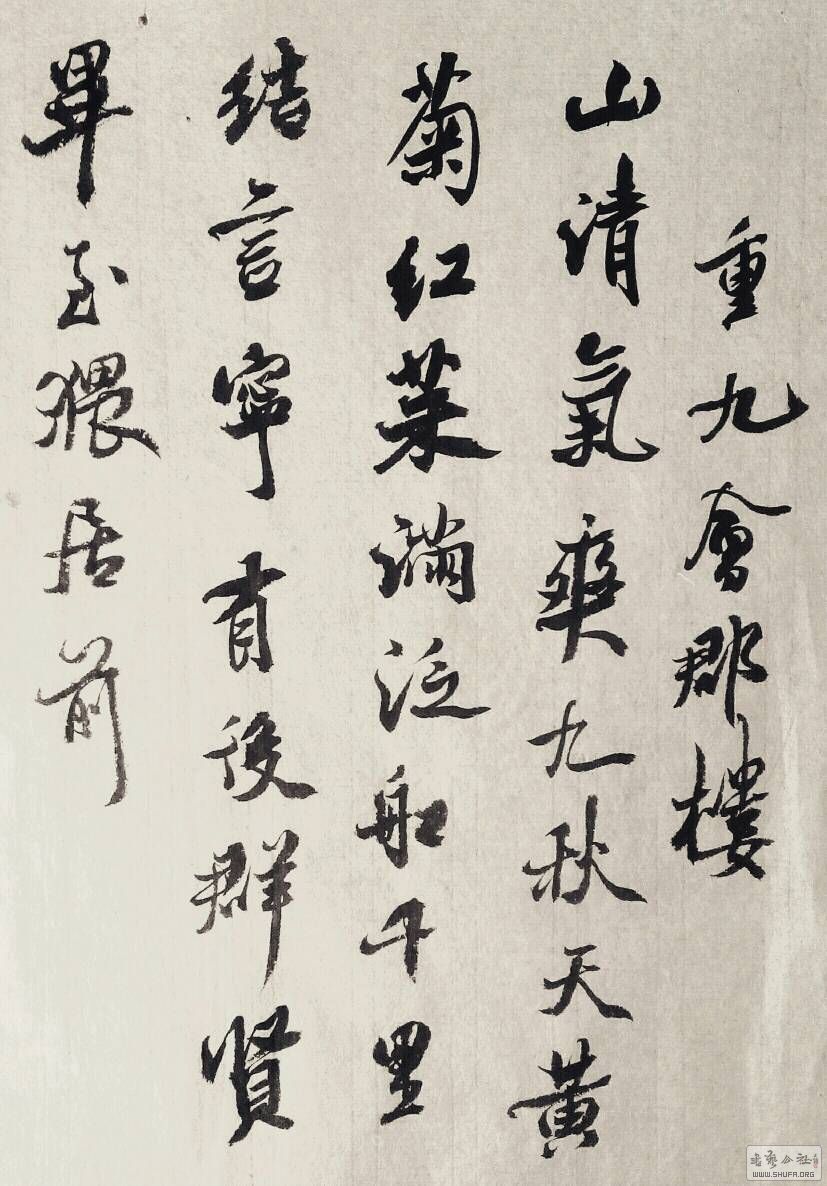 重九會郡樓
山清氣爽九秋天黃
菊紅茱滿泛船千里
結言寧有後群賢
畢至猥居前
WWW.SHUFA.ORG